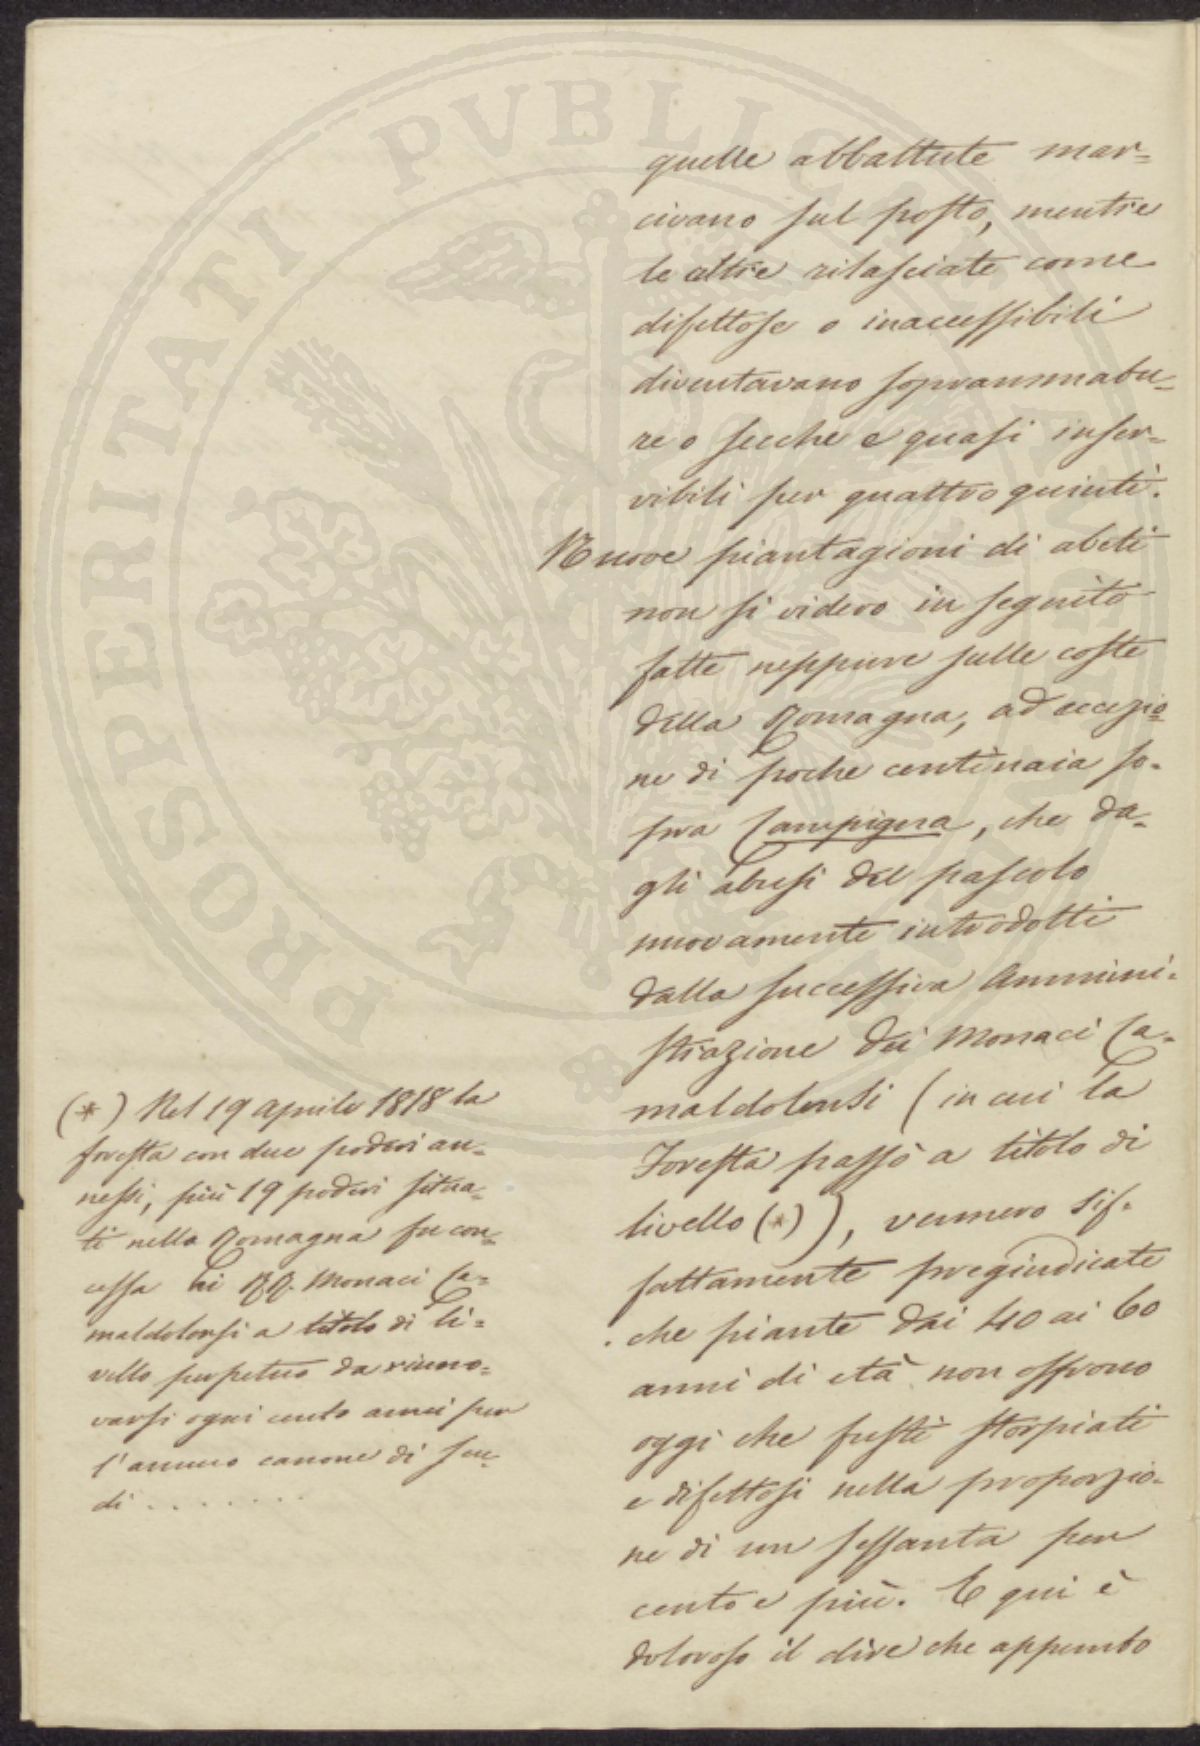 quelle abbattute mar=
civano sul posto, mentre
le altre rilasciate come
difettose o inaccessibili
diventavano soprammatu=
re o secche e quasi inser=
vibili per quattro quinti.
Nuove piantagioni di abeti
non si videro in seguito
fatte neppure sulle coste
della Romagna, ad eccezio=
ne di poche centinaia so=
pra Campigna, che da=
gli abusi del pascolo
nuovamente introdotti
dalla successiva Ammini=
strazione dei Monaci Ca=
maldolensi (in cui la
Foresta passò a titolo di
livello (*)), vennero sif=
fattamente pregiudicate
che piante dai 40 ai 60
anni di età non offrono
oggi che fusti storpiati
e difettosi nella proporzio=
ne di un sessanta per
cento e più. E qui è
doloroso il dire che appunto
(*) Nel 19 Aprile 1818 la
foresta con due poderi an=
nessi, più 19 poderi situa=
ti nella Romagna fu con=
cessa ai RR. Monaci Ca=
maldolensi a titolo di li=
vello perpetuo da rinno=
varsi ogni cento anni per
l'annuo canone di scu=
di . . . . . . . .
PROSPERITATI PVBLICAE AVGENDAE